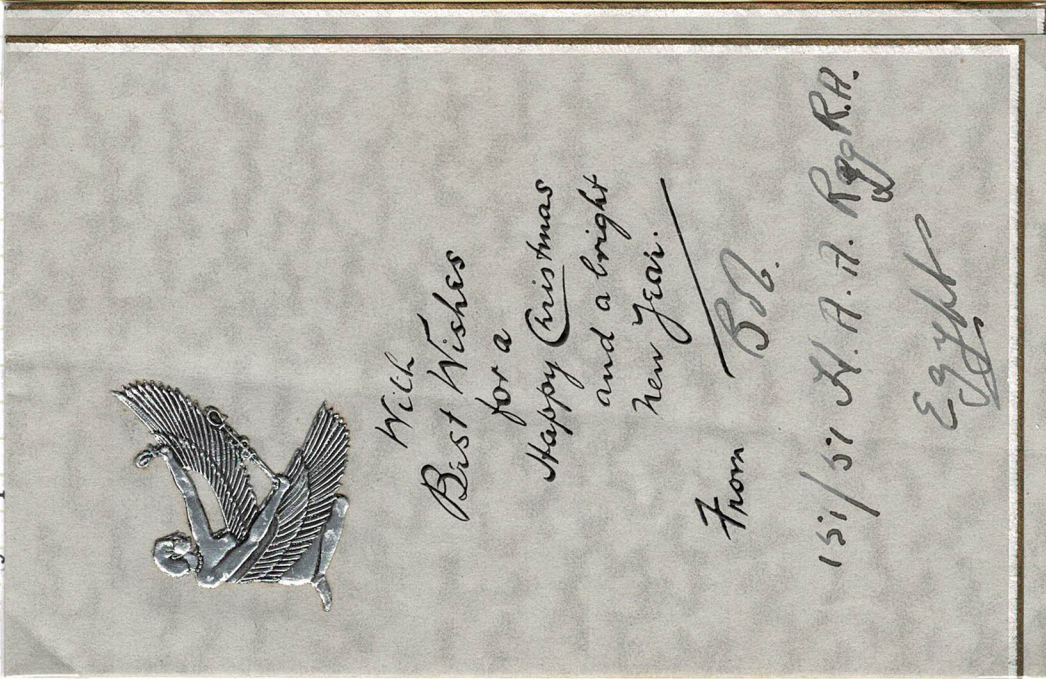 With
Best Wishes
for a
Happy Christmas
and a bright
New Year.
From Bob.
151/51 H.A.A. Regt R.A.
Egypt